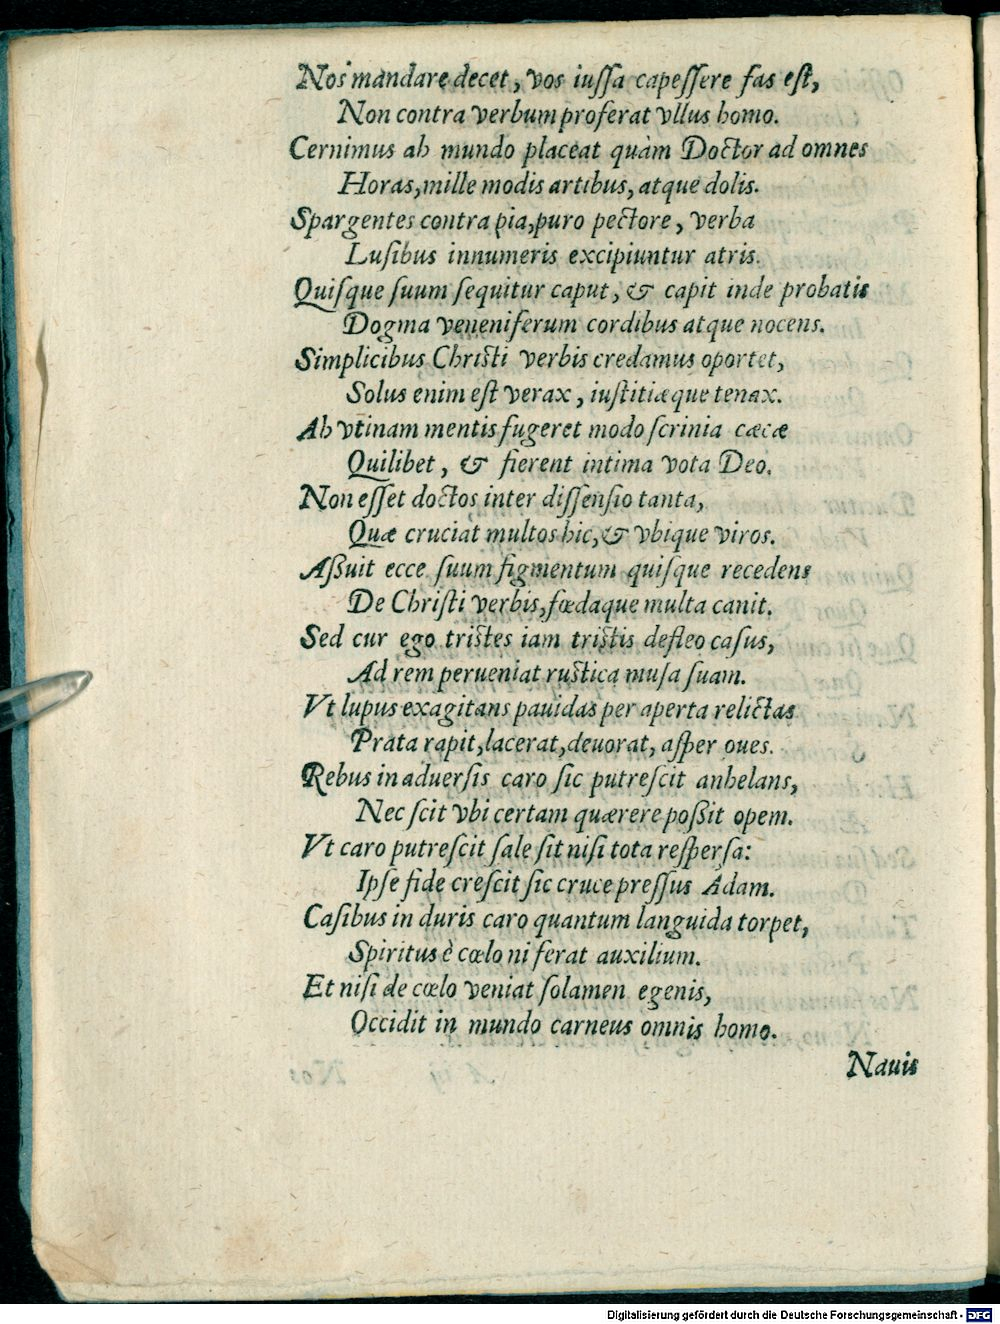 Nos mandare decet, vos iuſſa capeſſere fas eſt,
Non contra verbum proferat vllus homo.
Cernimus ah mundo placeat quàm Doctor ad omnes
Horas, mille modis artibus, atque dolis.
Spargentes contra pia, puro pectore, verba
Luſibus innumeris excipiuntur atris.
Quiſque ſuum ſequitur caput, & capit inde probatis
Dogma veneniferum cordibus atque nocens.
Simplicibus Chriſti verbis credamus oportet,
Solus enim eſt verax, iuſtitiæque tenax.
Ah vtinam mentis fugeret modo ſcrinia cæcæ
Quilibet, & fierent intima vota Deo.
Non eſſet doctos inter diſſenſio tanta,
Quæ cruciat multos hic, & vbique viros.
Aßuit ecce ſuum figmentum quiſque recedens
De Chriſti verbis, fœdaque multa canit.
Sed cur ego triſtes iam triſtis defleo caſus,
Ad rem perueniat ruſtica muſa ſuam.
Vt lupus exagitans pauidas per aperta relictas
Prata rapit, lacerat, deuorat, aſper oues.
Rebus in aduerſis caro ſic putreſcit anhelans,
Nec ſcit vbi certam quærere poßit opem.
Vt caro putreſcit ſale ſit niſi tota reſperſa:
Ipſe fide creſcit ſic cruce preſſus Adam.
Caſibus in duris caro quantum languida torpet,
Spiritus è cœlo ni ferat auxilium.
Et niſi de cœlo veniat ſolamen egenis,
Occidit in mundo carneus omnis homo.
Nauis
Digitalisierung gefördert durch die Deutsche Forschungsgemeinschaft - DFG